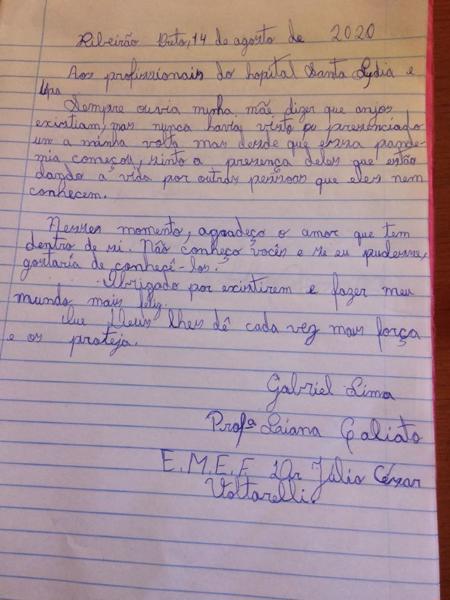 Ribeirão Preto, 14 de agosto de 2020
Aos profissionais do hopital Santa Lydia e
Upa
Sempre ouvia minha mãe dizer que anjos
existiam, mas nunca havia visto ou presenciado
um a minha volta mas desde que essa pande-
mia começou, sinto a presença deles que estão
dando a vida por outras pessoas que eles nem
conhecem.
Nesses momento, agradeço o amor que tem
dentro de si. Não conheço vocês e se eu pudesse,
gostaria de conheçê-los.
Obrigado por existirem e fazer meu
mundo mais feliz.
Que Deus lhes dê cada vez mais força
e os proteja.
Gabriel Lima
Profª Laiana Galiato
E.M.E.F Dr Júlio César
Voltarelli.